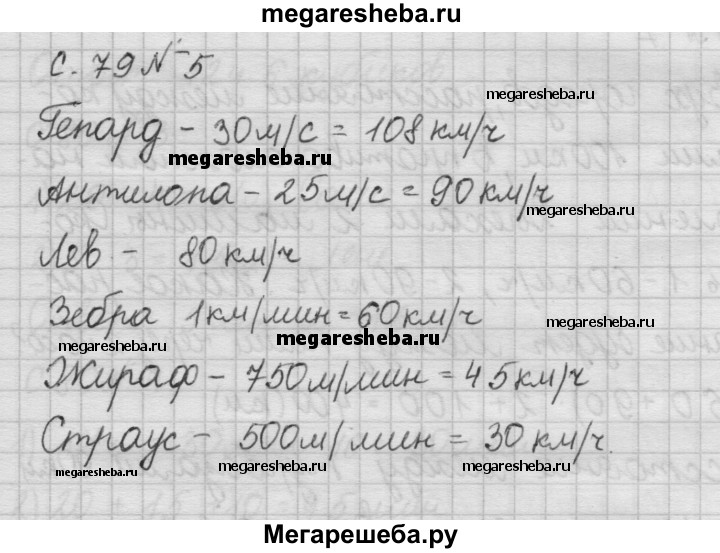 megaresheba.ru
с. 79 № 5
megaresheba.ru
Гепард - 30 м/с = 108 км/ч
megaresheba.ru
Антилопа - 25 м/с = 90 км/ч
megaresheba.ru
Лев - 80 км/ч
Зебра 1 км/мин = 60 км/ч
megaresheba.ru
megaresheba.ru
megaresheba.ru
Жираф - 750 м/мин = 45 км/ч
Страус - 500 м/мин = 30 км/ч.
megaresheba.ru
megaresheba.ru
megaresheba.ru
megaresheba.ru
Мегарешеба.ру